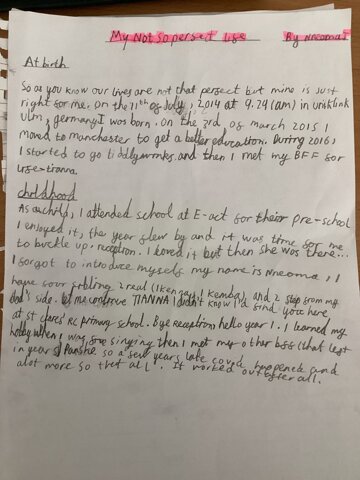 My Not So persect life By Nneoma
At birth
So as you know our lives are not that persect but mine is just
right for me. on the 11th of July, 2014 at 9.24 (am) in
ulm, germany I was born. on the 3rd of march 2015 I
moved to manchester to get a better education. During 2016,
I started to go tiddlywinks and then I met my BFF for
lise-tianna.
childhood
As a child, I attended school at E-act for their pre-school
I enjoyed it, the year flew by and it was time for me
to buckle up, reception. I loved it but then she was there...
I forgot to introduce myself my name is Nneoma, I
have four sibling 2 real (Ikenga, Kemba) and 2 step from my
dad's side. let me continue TIANNA I didn't know I'd find you here
at st Clares' RC primary school. Bye reception hello year 1. I learned my
hobby when I was singing then I met my other bff (that left
in year 5) so a few years late covid happened and
alot more so that all. It worked out after all.